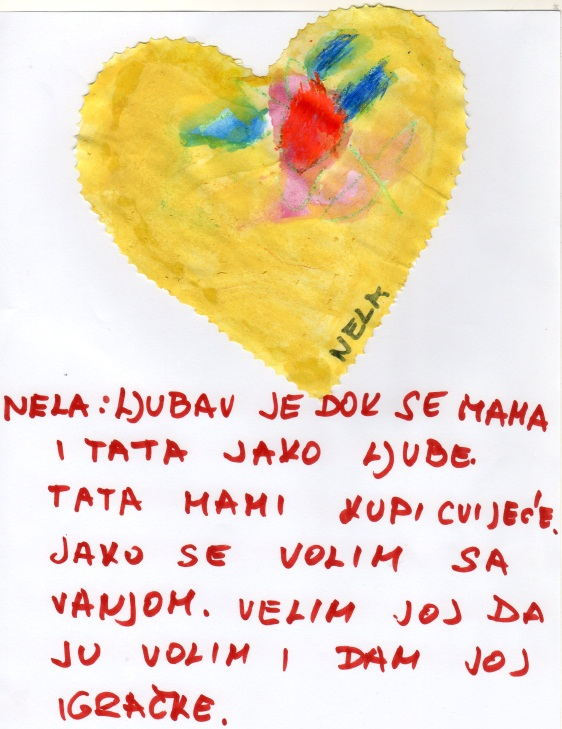 NELA
NELA: LJUBAV JE DOK SE MAMA
I TATA JAKO LJUBE.
TATA MAMI KUPI CVIJEĆE.
JAKO SE VOLIM SA
VANJOM. VELIM JOJ DA
JU VOLIM I DAM JOJ
IGRAČKE.